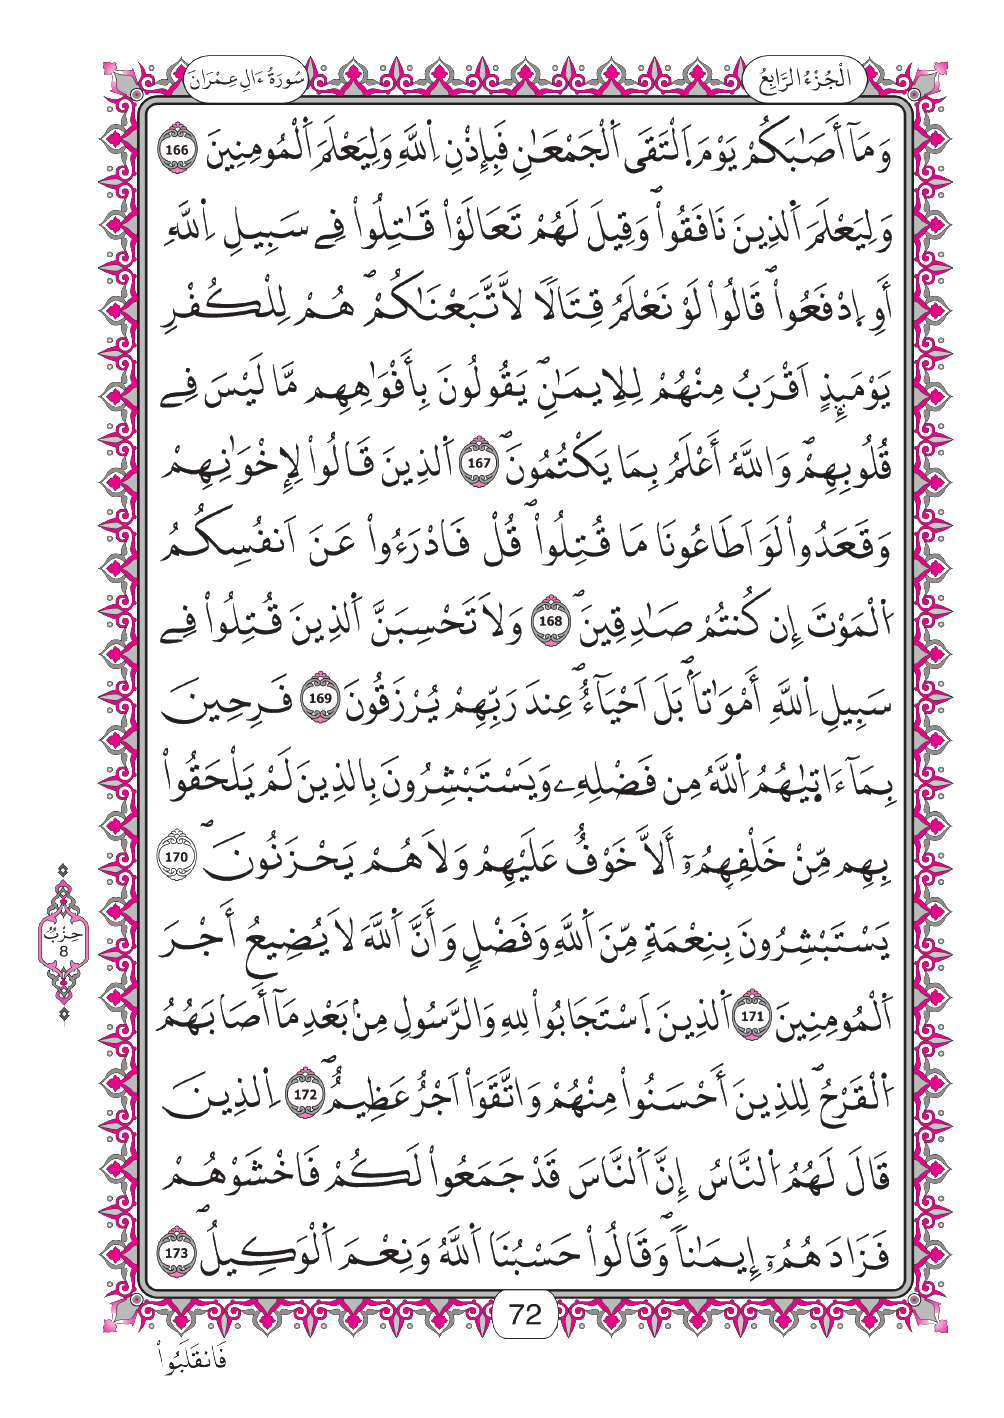 سُورَةُ ءَالِ عِمْرَانَ
الْجُزْءُ الرَّابِعُ
وَمَآ أَصَٰبَكُمْ يَوْمَ اَ۬لْتَقَى اَ۬لْجَمْعَٰنِ فَبِإِذْنِ اِ۬للَّهِ وَلِيَعْلَمَ اَ۬لْمُومِنِينَ 166
وَلِيَعْلَمَ اَ۬لذِينَ نَافَقُواْۖ وَقِيلَ لَهُمْ تَعَالَوْاْ قَٰتِلُواْ فِے سَبِيلِ اِ۬للَّهِ
أَوِ اِ۪دْفَعُواْۖ قَالُواْ لَوْ نَعْلَمُ قِتَالَا لَّاتَّبَعْنَٰكُمْۖ هُمْ لِلْكُفْرِ
يَوْمَئِذٍ اَقْرَبُ مِنْهُمْ لِلِايمَٰنِۖ يَقُولُونَ بِأَفْوَٰهِهِم مَّا لَيْسَ فِے
قُلُوبِهِمْۖ وَاللَّهُ أَعْلَمُ بِمَا يَكْتُمُونَۖ 167 اَ۬لذِينَ قَالُواْ لِإِخْوَٰنِهِمْ
وَقَعَدُواْ لَوَ اَطَاعُونَا مَا قُتِلُواْۖ قُلْ فَادْرَءُواْ عَنَ اَنفُسِكُمُ
اُ۬لْمَوْتَ إِن كُنتُمْ صَٰدِقِينَۖ 168 وَلَا تَحْسِبَنَّ اَ۬لذِينَ قُتِلُواْ فِے
سَبِيلِ اِ۬للَّهِ أَمْوَٰتاَۢۖ بَلَ اَحْيَآءٌۖ عِندَ رَبِّهِمْ يُرْزَقُونَ 169 فَرِحِينَ
بِمَآ ءَات۪يٰهُمُ اُ۬للَّهُ مِن فَضْلِهِۦ وَيَسْتَبْشِرُونَ بِالذِينَ لَمْ يَلْحَقُواْ
بِهِم مِّنْ خَلْفِهِمُۥٓ أَلَّا خَوْفٌ عَلَيْهِمْ وَلَا هُمْ يَحْزَنُونَۖ 170
يَسْتَبْشِرُونَ بِنِعْمَةٍ مِّنَ اَ۬للَّهِ وَفَضْلٍ وَأَنَّ اَ۬للَّهَ لَا يُضِيعُ أَجْرَ
اَ۬لْمُومِنِينَ 171 اَ۬لذِينَ اَ۪سْتَجَابُواْ لِلهِ وَالرَّسُولِ مِنۢ بَعْدِ مَآ أَصَابَهُمُ
اُ۬لْقَرْحُۖ لِلذِينَ أَحْسَنُواْ مِنْهُمْ وَاتَّقَوَاْ اَجْرٌ عَظِيمٌۖ 172 اِ۬لذِينَ
قَالَ لَهُمُ اُ۬لنَّاسُ إِنَّ اَ۬لنَّاسَ قَدْ جَمَعُواْ لَكُمْ فَاخْشَوْهُمْ
فَزَادَهُمُۥٓ إِيمَٰناًۖ وَقَالُواْ حَسْبُنَا اَ۬للَّهُ وَنِعْمَ اَ۬لْوَكِيلُۖ 173
حِزْبُ
8
72
فَانقَلَبُواْ